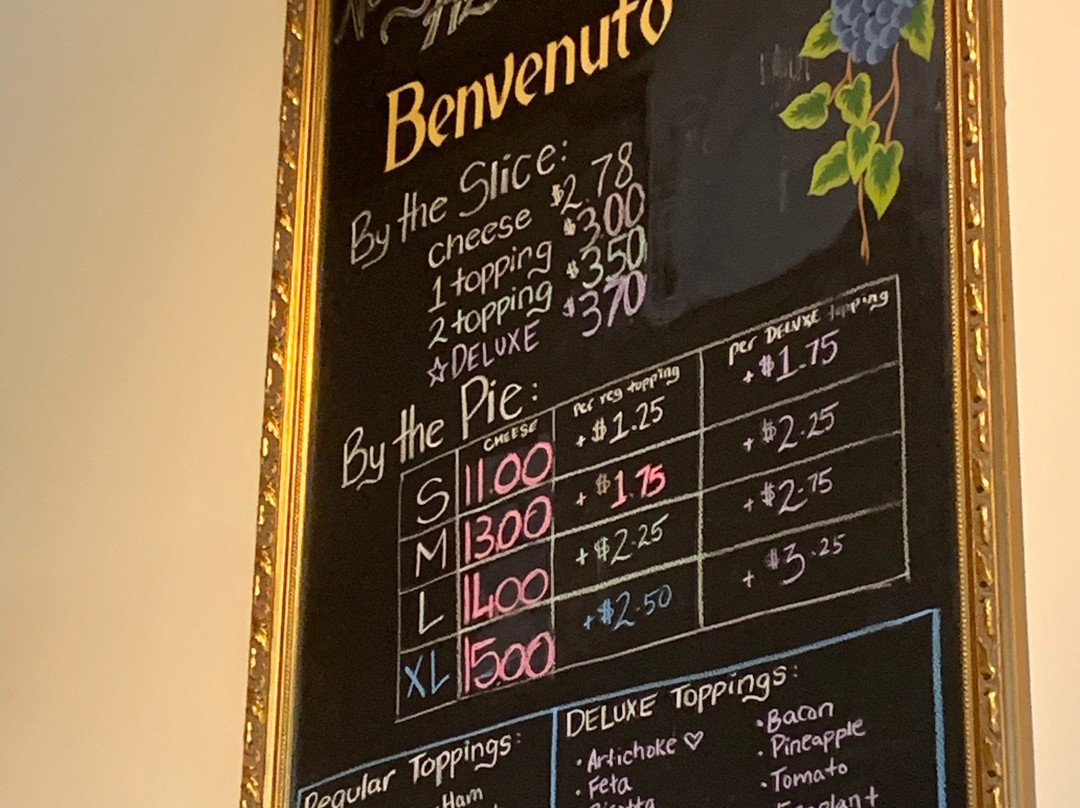 Benvenuto
By the Slice:
cheese $2.78
1 topping $3.00
2 topping $350
☆DELUXE $370
By the Pie:
CHEESE per reg topping per DELUXE topping
S 11.00 + $1.25 + $1.75
M 13.00 + $1.75 + $2.25
L 14.00 + $2.25 + $2.75
XL 15.00 + $2.50 + $3.25
Regular Toppings:
Ham
DELUXE Toppings:
• Artichoke ♡
• Feta
Ricotta
• Bacon
• Pineapple
• Tomato
Eggplant